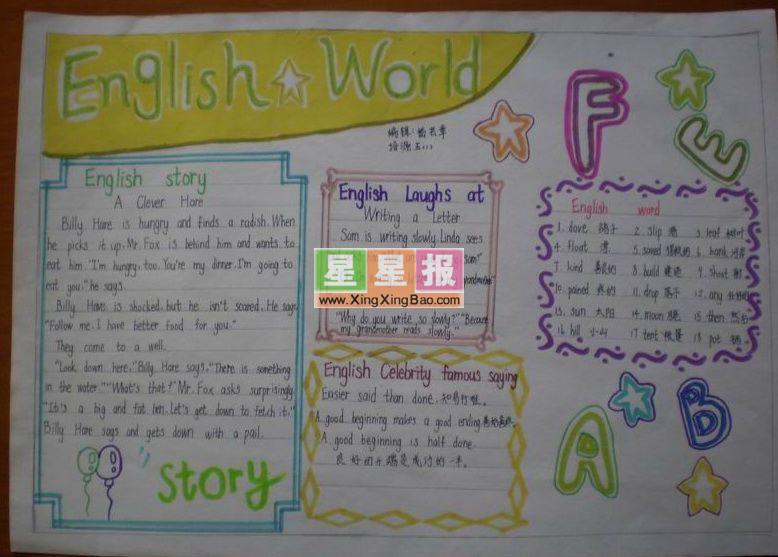 English World
编辑:
English story
A Clever Hare
Billy Hare is hungry and finds a radish. When
he picks it up, Mr. Fox is behind him and wants to
eat him. "I'm hungry, too. You're my dinner. I'm going to
eat you," he says.
Billy Hare is shocked, but he isn't scared. He says
"Follow me. I have better food for you."
They come to a well.
"Look down here," Billy Hare says, "There is something
in the water." "What's that?" Mr. Fox asks surprisingly.
"It's a big and fat hen. Let's get down to fetch it,"
Billy Hare says and gets down with a pail.
story
English Laughs at
Writing a Letter
Sam is writing slowly. Linda sees
Sam?"
grandmother"
"Why do you write so slowly?" "Because
my grandmother reads slowly."
星星报
www.XingXingBao.com
English Celebrity famous saying
Easier said than done. 知易行难。
A good beginning makes a good ending. 善始善终。
A good beginning is half done.
良好的开端是成功的一半。
F
E
English word
1. dove 鸽子 2. slip 滑 3. leaf 树叶
4. float 漂 5. saved 6. bank 河岸
7. kind 善良的 8. build 建造 9. shoot 射
10. pained 疼的 11. drop 落下 12. any
13. sun 太阳 14. moon 月亮 15. then 然后
16. hill 小山 17. tent 帐篷 18. pot 锅
A
B